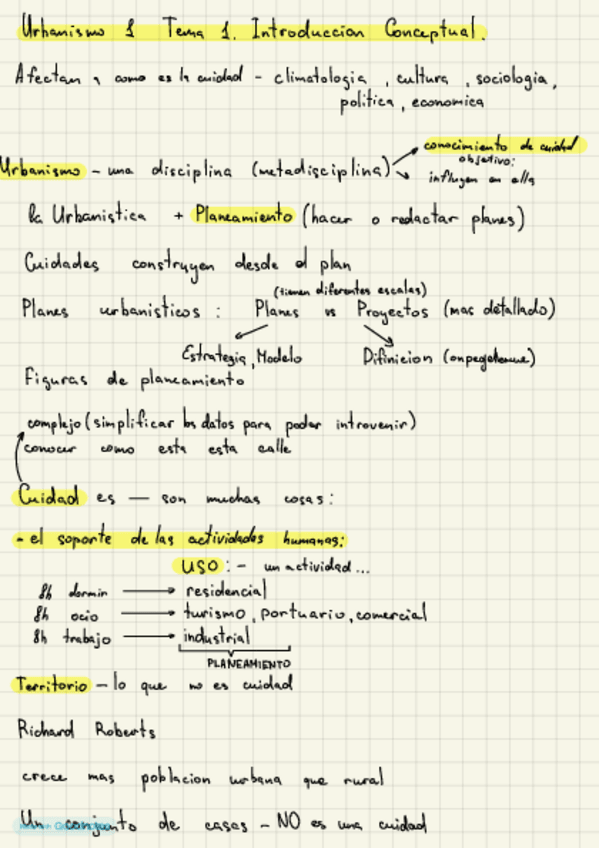 Urbanismo 1 Tema 1. Introduccion Conceptual.
Afectan a como es la cuidad - climatologia, cultura, sociologia,
politica, economica
Urbanismo - una disciplina (metadisciplina)
conocimiento de cuidad
objetivo:
influyen en ella
la Urbanistica + Planeamiento (hacer o redactar planes)
Cuidades construyen desde el plan
(tienen diferentes escalas)
Planes urbanisticos : Planes vs Proyectos (mas detallado)
Estrategia, Modelo Difinicion
Figuras de planeamiento
complejo (simplificar los datos para poder introvenir)
conocer como esta esta calle
Cuidad es — son muchas cosas:
- el soporte de las actividades humanas:
USO: - un actividad...
8h dormir → residencial
8h ocio → turismo, portuario, comercial
8h trabajo → industrial
PLANEAMIENTO
Territorio - lo que no es cuidad
Richard Roberts
crece mas poblacion urbana que rural
Un conjunto de casas - NO es una cuidad